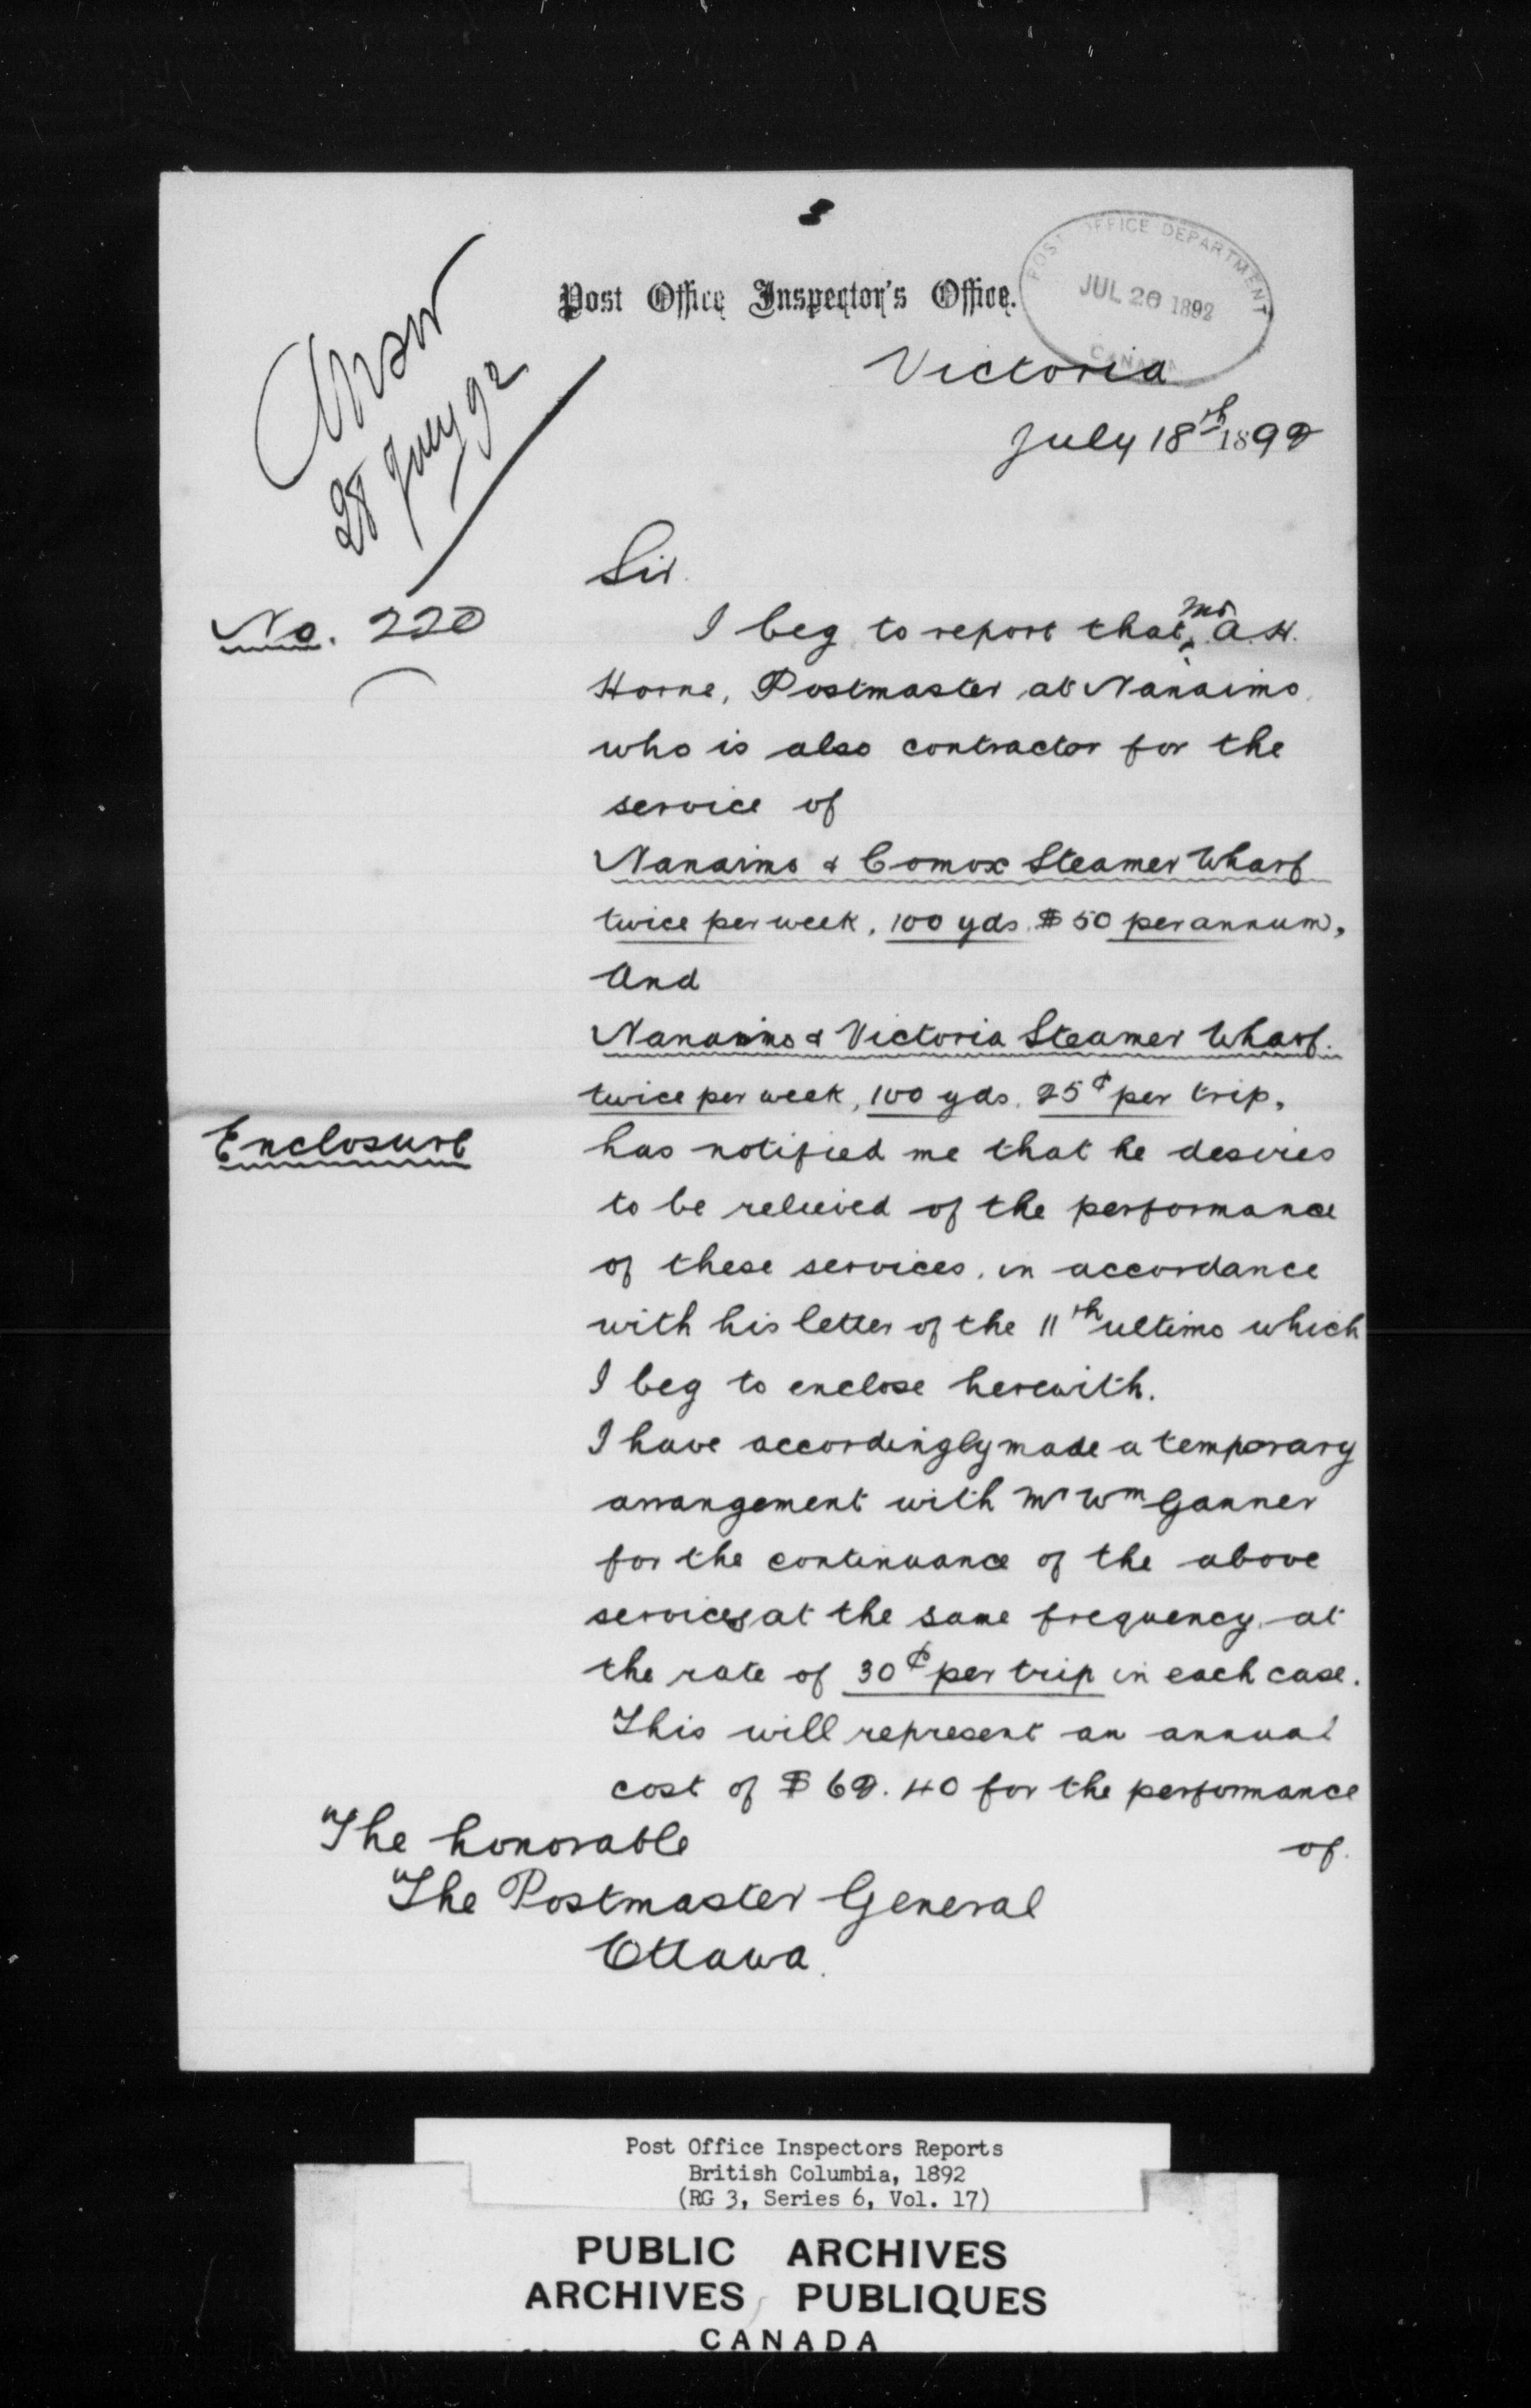 POST OFFICE DEPARTMENT
JUL 26 1892
CANADA
Post Office Inspector's Office.
Victoria
July 18th 1892
28 July 92
Sir.
No. 220
I beg to report that Mr A. H.
Horne, Postmaster at Nanaimo,
who is also contractor for the
service of
Nanaimo & Comox Steamer Wharf
twice per week, 100 yds. $50 per annum,
And
Nanaimo & Victoria Steamer Wharf.
twice per week, 100 yds. 25¢ per trip,
Enclosure
has notified me that he desires
to be relieved of the performance
of these services, in accordance
with his letter of the 11th ultimo which
I beg to enclose herewith.
I have accordingly made a temporary
arrangement with Mr Wm Ganner
for the continuance of the above
services at the same frequency, at
the rate of 30¢ per trip in each case.
This will represent an annual
cost of $62.40 for the performance
of.
The honorable
The Postmaster General
Ottawa.
Post Office Inspectors Reports
British Columbia, 1892
(RG 3, Series 6, Vol. 17)
PUBLIC ARCHIVES
ARCHIVES PUBLIQUES
CANADA